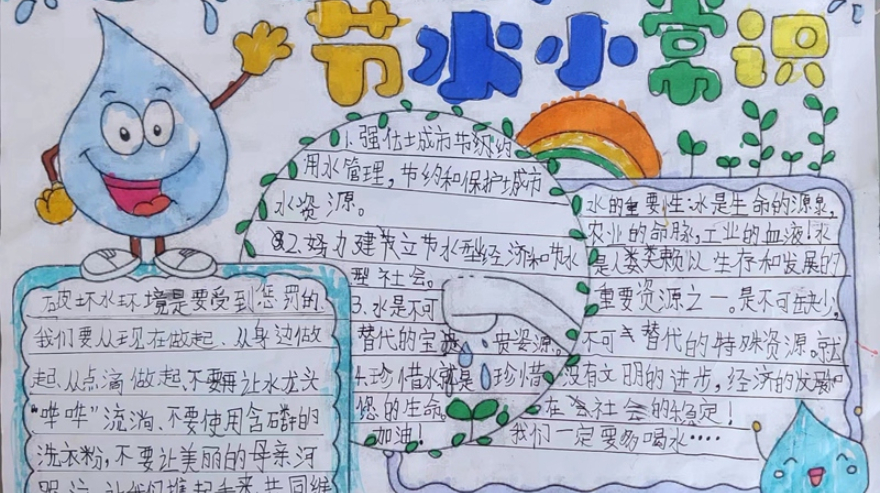 节水小常识
1.强化城市节约
用水管理,节约和保护城市
水资源。
2.努力建立节水型经济和节水
型社会。
3.水是不可
替代的宝贵资源。
4.珍惜水就是珍惜
您的生命。
加油!
水的重要性:水是生命的源泉,
农业的命脉,工业的血液!水
是人类赖以生存和发展的
重要资源之一。是不可缺少,
不可替代的特殊资源。就
没有文明的进步,经济的发展和
在会社会的稳定!
我们一定要多喝水····
破坏水环境是要受到惩罚的,
我们要从现在做起、从身边做
起、从点滴做起、不要再让水龙头
“哗哗”流淌、不要使用含磷的
洗衣粉,不要让美丽的母亲河